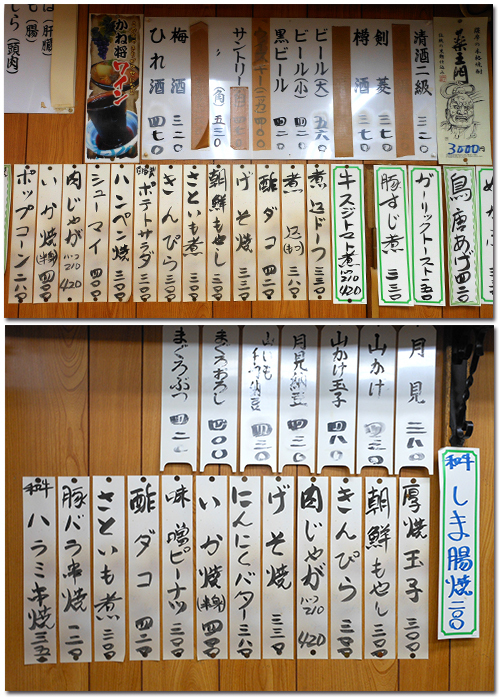 薬王門
3000円
清酒二級 三二〇
剣菱 三七〇
樽酒 三七〇
ビール(大) 五六〇
ビール(小) 四二〇
黒ビール 四二〇
サントリー(角) 五三〇
梅酒 三二〇
ひれ酒 四七〇
かね将ワイン
(肝腸)
しら(頭肉)
鳥唐あげ 四二〇
ガーリックトースト 一五〇
豚すじ煮 三三〇
牛スジトマト煮 ハーフ210 420
煮込ドーフ 三五〇
煮込(もつ) 三八〇
酢ダコ 四二〇
げそ焼 三三〇
朝鮮もやし 三〇〇
さといも煮 三〇〇
きんぴら 三〇〇
自家製ポテトサラダ 三五〇
ハンペン焼 三〇〇
シューマイ 四二〇
肉じゃが ハーフ210 420
いか焼(半身) 四四〇
ポップコーン 二八〇
月見 二八〇
山かけ 四三〇
山かけ玉子 四八〇
月見納豆 四三〇
山いも千切納豆 四三〇
まぐろおろし 四〇〇
まぐろぶつ 四二〇
和牛 しま腸焼 二〇〇
厚焼玉子 三〇〇
朝鮮もやし 三〇〇
きんぴら 三五〇
肉じゃが ハーフ210 420
げそ焼 三三〇
にんにくバター 三八〇
いか焼(半身) 四四〇
味噌ピーナツ 三〇〇
酢ダコ 四二〇
さといも煮 三〇〇
豚バラ串焼 一二〇
和牛 ハラミ串焼 三五〇